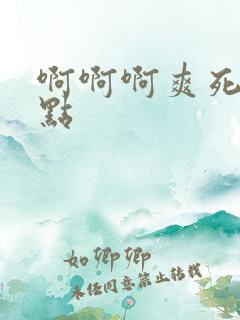 啊啊啊爽死
點
如卿卿
未任同意禁止转载